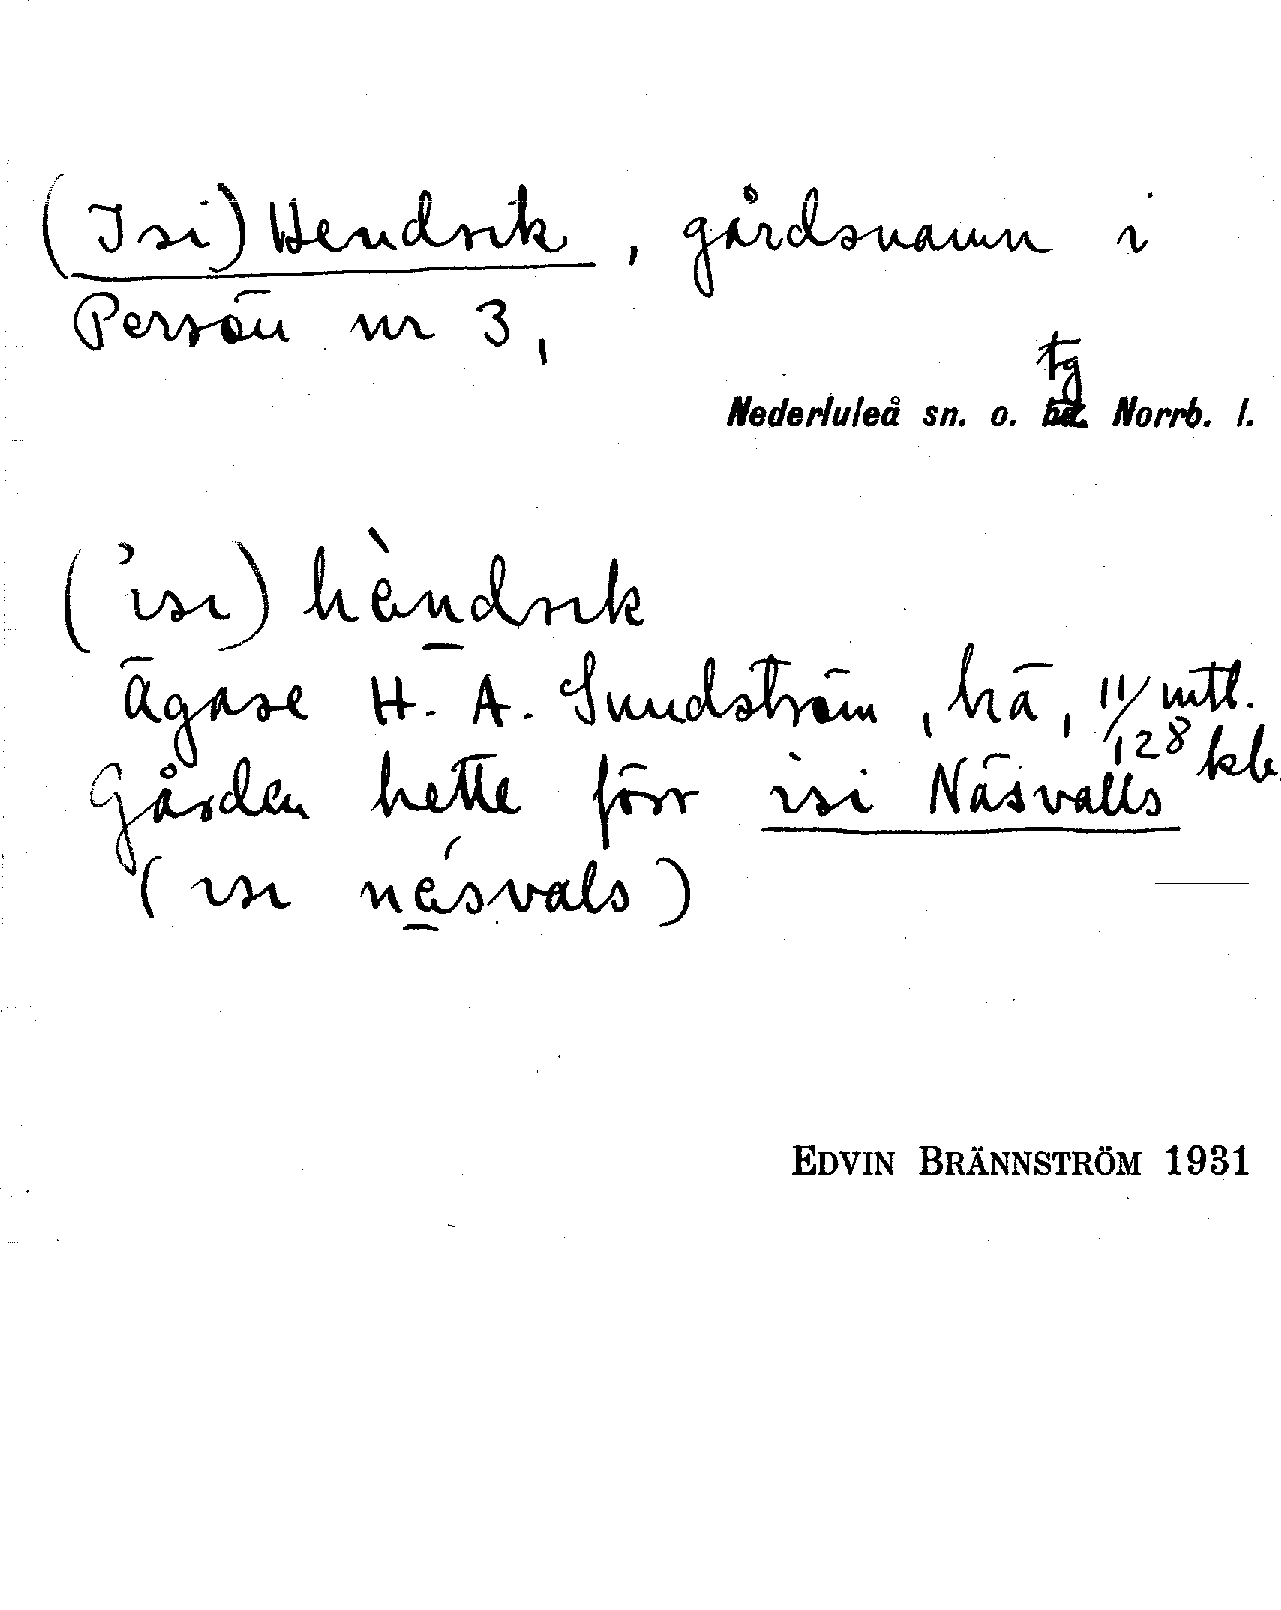 (Isi) Hendrik, gårdsnamn i
Persön nr 3,
tg
Nederluleå sn. o. Norrb. l.
('isi) hàndrik
Ägare H. A. Sundström, hä, 11/128 mtl.
kb.
Gården hette förr isi Näsvalls
(isi näsvals)
EDVIN BRÄNNSTRÖM 1931